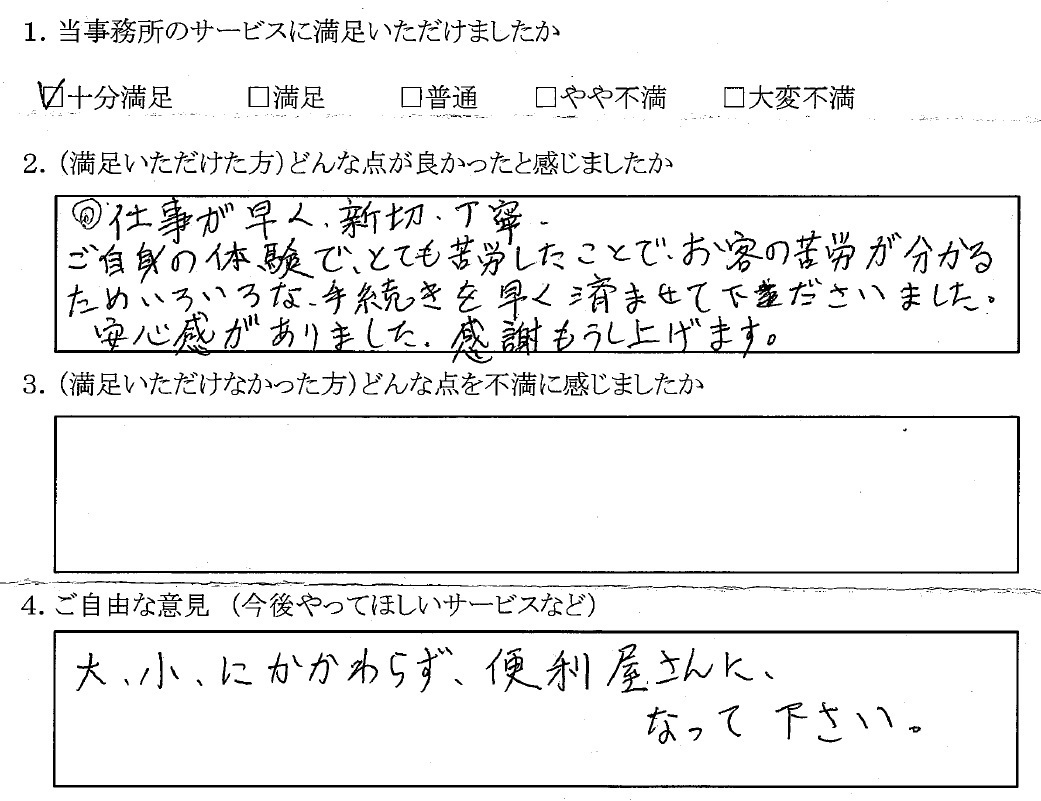 1. 当事務所のサービスに満足いただけましたか
☑十分満足 □満足 □普通 □やや不満 □大変不満
2. (満足いただけた方)どんな点が良かったと感じましたか
◎仕事が早く、新切、丁寧、
ご自身の体験で、とても苦労したことで、お客の苦労が分かる
ためいろいろな、手続きを早く済ませて下さださいました。
安心感がありました、感謝もうし上げます。
3. (満足いただけなかった方)どんな点を不満に感じましたか
4. ご自由な意見 (今後やってほしいサービスなど)
大、小、にかかわらず、便利屋さんに、
なって下さい。